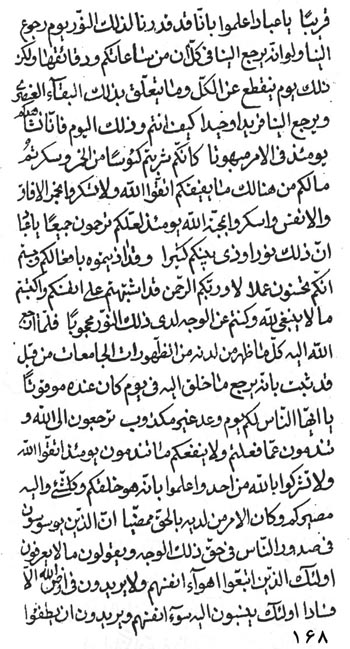 قريبًا يا عباد اعلموا بانّا قد قدرنا لذلك النّور يوم رجوع
الينا ولو انّه يرجع الينا فى كلّ ان من ساعاتكم ودقائقها ولكن
ذلك يوم ينقطع عن الكلّ وما يتعلّق بذلك البقآء
ويرجع الينا فريدا وحيدا كيف انتم فى ذلك اليوم فانّا
يومئذ فى الامر مبهوتا كانّكم شربتم كئوسا من الخمر وسكرتم
مالكم من هنالك ما يفيقكم اتّقوا الله ولا تسكروا بخمر الافاق
والانفس واسكروا بمحبّة الله يومئذ لعلّكم ترحمون جميعًا
انّ ذلك نور اوذى بينكم كثيرا وقد اذيتموه بافعالكم
انّكم محسنون عملا لا وربّكم الرّحمن قد اشتبهتم على انفسكم
ما لا ينبغى لله وكنتم عن الوجه لدى ذلك النّور محجوبًا فلمّا ارجع
الله اليه كلّ ما ظهر من لدنه من الظّهورات الجامعات من قبل
قد ثبت بانّه يرجع ما خلق اليه فى يوم كان عنده موقوتًا
يا ايّها النّاس لكم يوم وعد غير مكذوب ترجعون الى الله و
تندمون عمّا فعلتم ولا ينفعكم ما تندمون يومئذ اتّقوا الله
ولا تشركوا بالله من احد واعلموا بانّه هو خلقكم وكلّ شئ واليه
مصيركم وكان الامر من لديه بالحقّ ممضيّا انّ الذين يوسوسون
فى صدور النّاس فى حقّ ذلك الوجه ويقولون ما لا يعرفون
اولئك الّذين اتّبعوا اهوآء انفسهم ولا يريدون فى ارض الله الّا
فسادا اولئك ينسبون اليه سوء انفسهم ويريدون ان يطفئوا
١٦٨